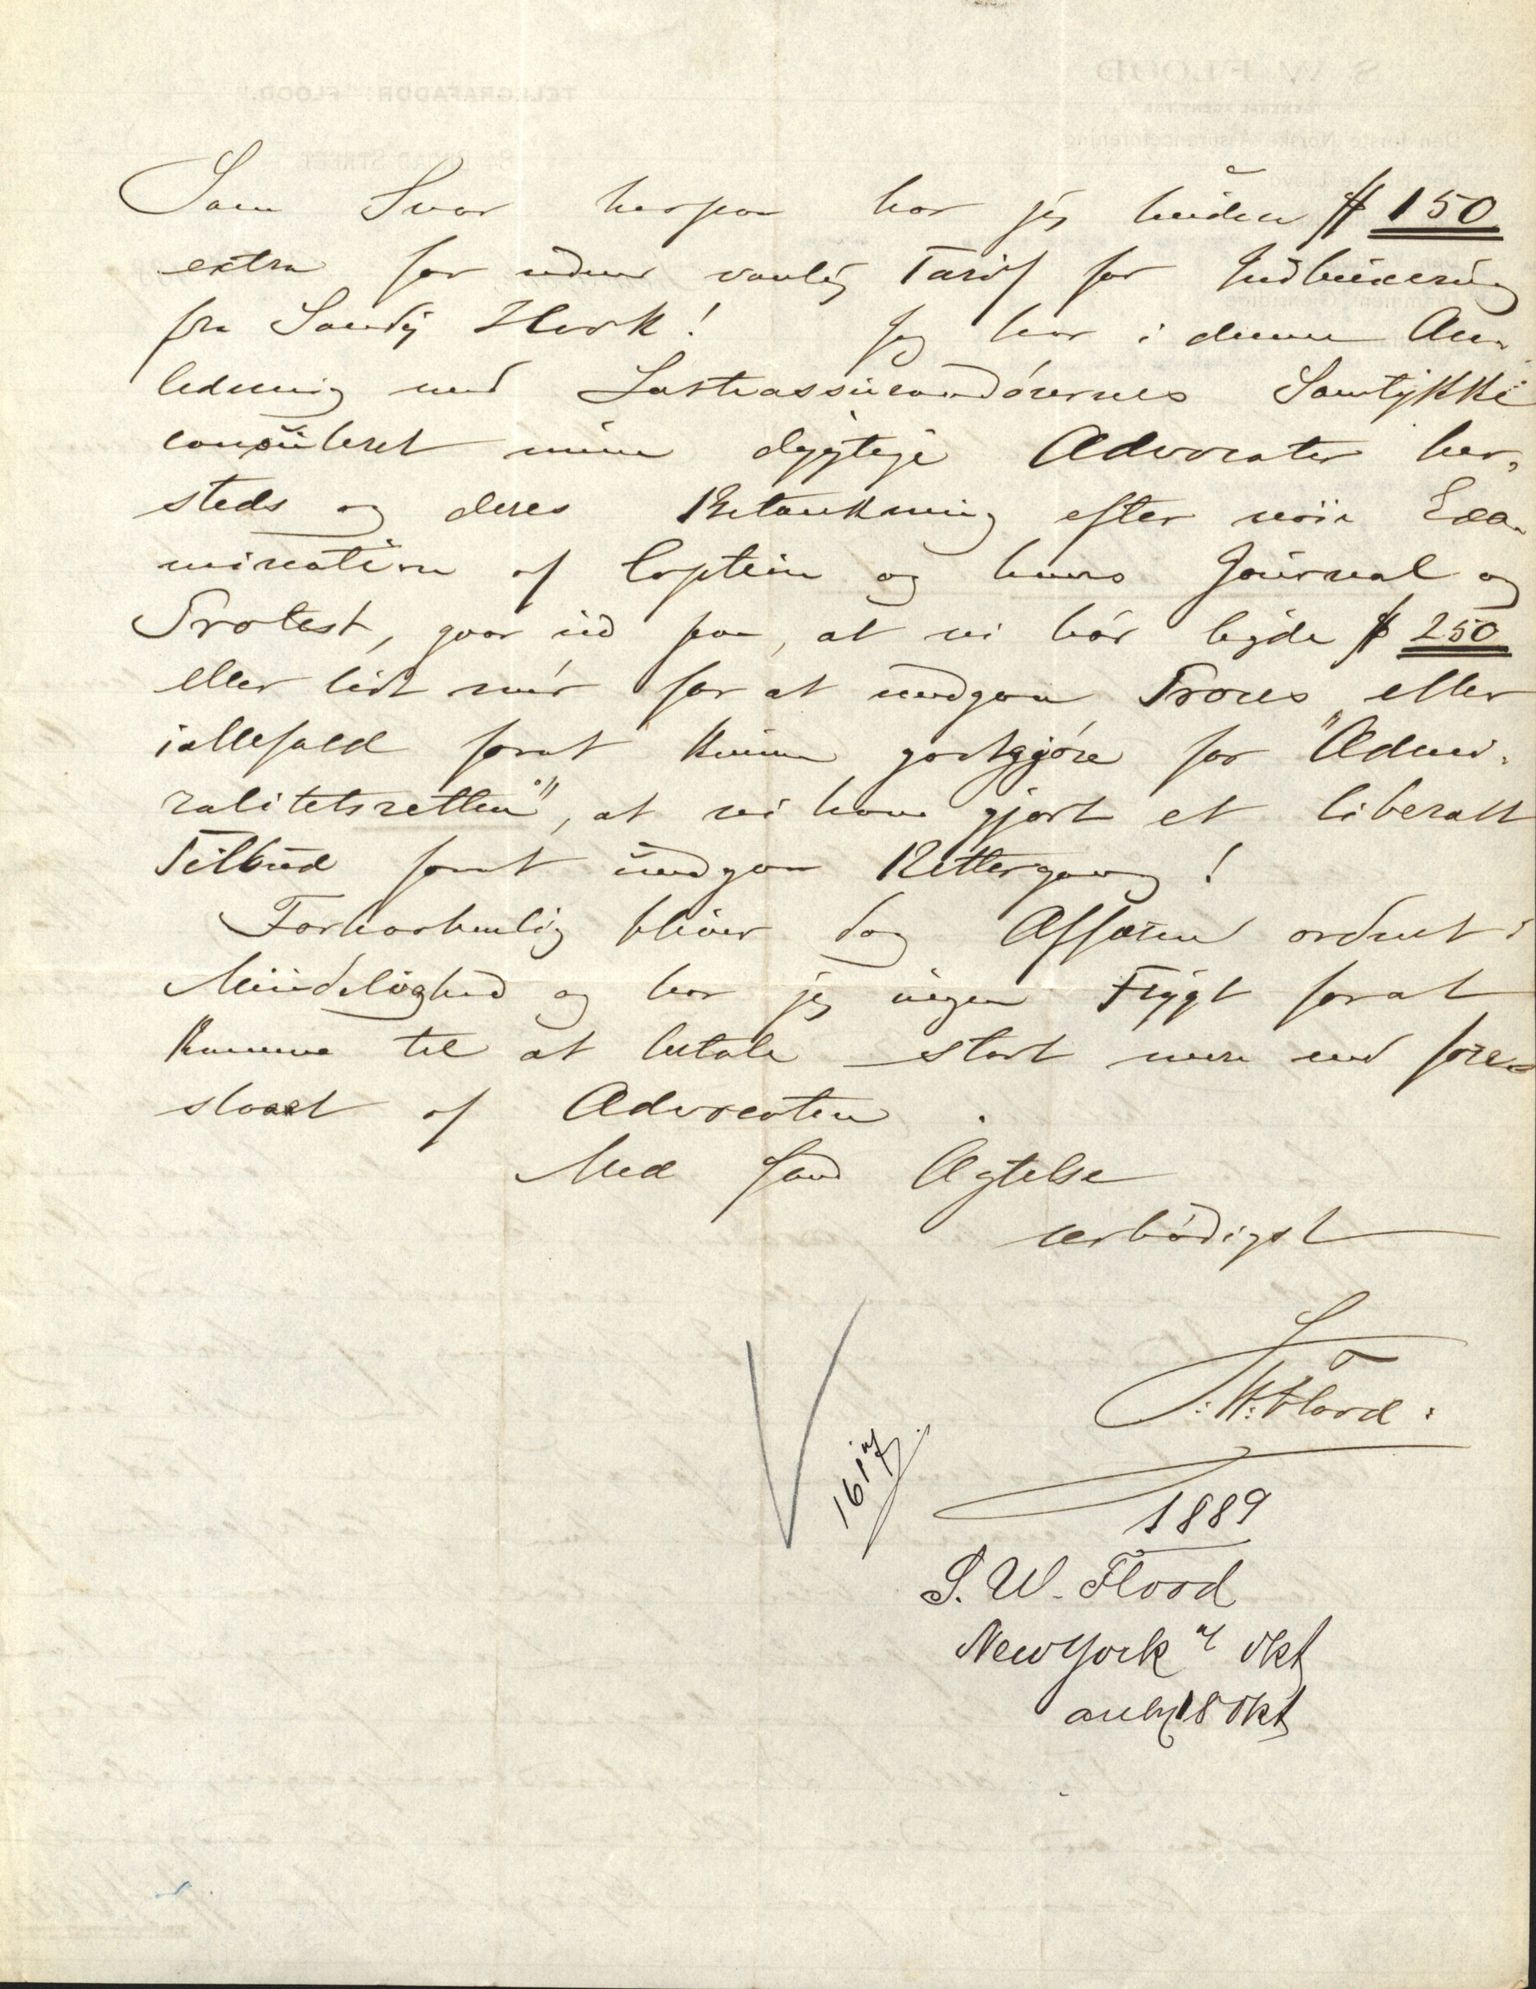 Som Svar herpaa har jeg buden $ 150
extra for uden vanlig Tarif for Indbuxering
fra Sandy Hook! Jeg har i denne An-
ledning med Lastassurandörernes Samtykke
consuleret mine dygtige Advocater her-
steds og deres Betænkning efter nöie Exa-
mination af Captein og hans Journal og
Protest, gaar ud paa, at vi bör byde $ 250
eller lidt mér for at undgaa Proces eller
iallefald forat kunne godtgjöre for "Admi-
ralitetsretten", at vi have gjort et liberalt
Tilbud forat undgaa Rettergang!
Forhaabentlig bliver dog Affæren ordnet i
Mindelighed og har jeg ingen Frygt forat
komme til at betale stort mere end fore-
slaaet af Advocaten.
Med sand Agtelse
ærbödigst
S. W. Flood.
1889
S. W. Flood
New York 4/ Okt
ank 18 Okt